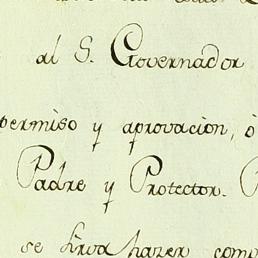 al S. Governador
permiso y aprovacion, ó
Padre y Protector.
se sirva hazer como